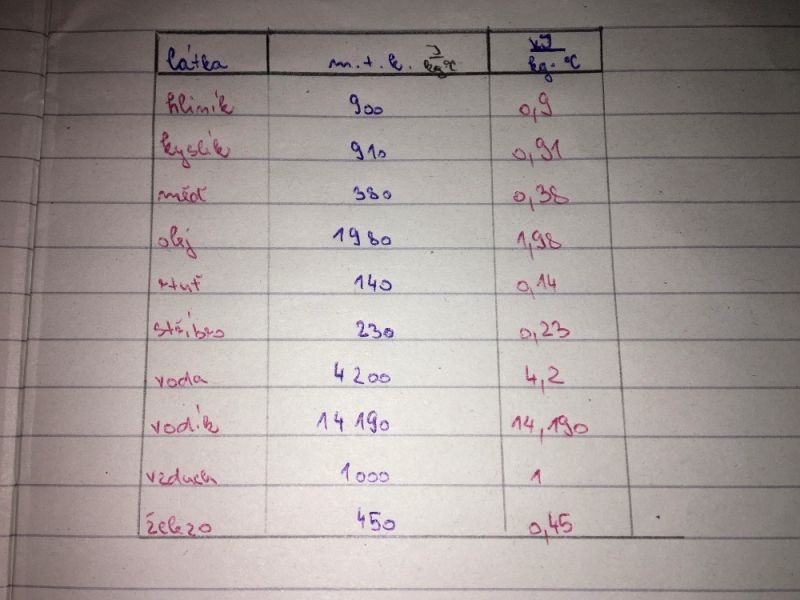 látka m.t.k. J/kg°C kJ/kg·°C
hliník 900 0,9
kyslík 910 0,91
měď 380 0,38
olej 1980 1,98
rtuť 140 0,14
stříbro 230 0,23
voda 4200 4,2
vodík 14 190 14,190
vzduch 1000 1
železo 450 0,45